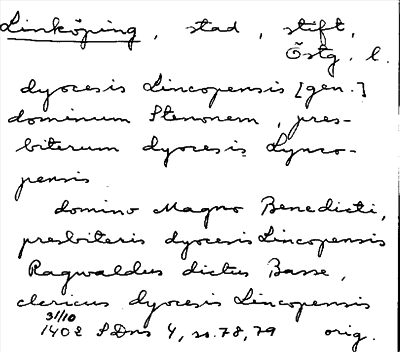 Linköping, stad, stift,
Östg. l.
dyocesis Lincopensis [gen.]
dominum Stenonem, pres-
biterum dyocesis Lynco-
pensis
domino Magno Benedicti,
presbiteris dyocesis Lincopensis
Ragwaldus dictus Basse,
clericus dyocesis Lincopensis
31/10
1402 SDns 4, s. 78, 79 orig.